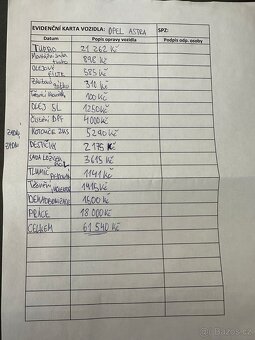 EVIDENČNÍ KARTA VOZIDLA: OPEL ASTRA SPZ:
Datum Popis opravy vozidla Podpis odp. osoby
TURBO 21 262 Kč
Montážní sada turba 898 Kč
OLEJOVÝ FILTR 585 Kč
310 Kč
100 Kč
OLEJ 5L 1250 Kč
ČIŠTĚNÍ DPF 4000 Kč
ZADNÍ KOTOUČE 2KS 5290 Kč
ZADNÍ DESTIČKY 2175 Kč
SADA LOŽISEK KOL 3615 Kč
TLUMIČ 1141 Kč
TĚSNĚNÍ 1915 Kč
DEKARBONIZACE 1500 Kč
PRÁCE 18 000 Kč
CELKEM 61 540 Kč
Bazos.cz